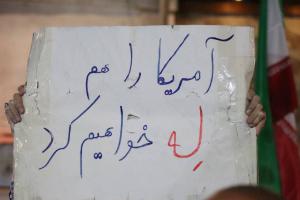 آمریکا را هم
لِه خواهیم کرد